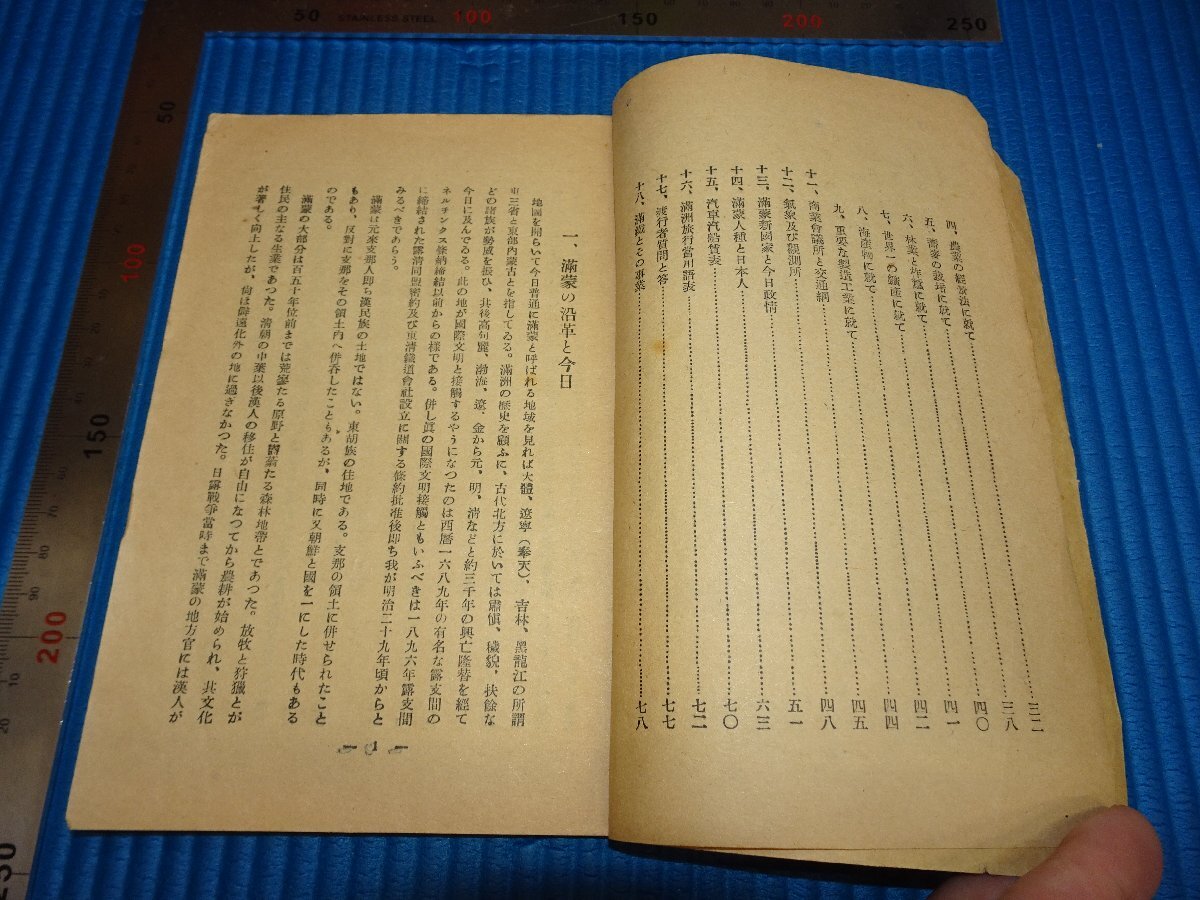 50 STAINLESS STEEL 100 150 200 250
50
100
150
200
250
四、農業の經營法に就て……三二
五、蕎麥の栽培に就て……三八
六、林業と柞蠶に就て……四〇
七、世界一の鑛產に就て……四一
八、海產物に就て……四二
九、重要な製造工業に就て……四四
十一、商業會議所と交通網……四五
十二、氣象及び觀測所……四八
十三、滿蒙新國家と今日政情……五一
十四、滿蒙人種と日本人……六三
十五、汽車汽船賃表……七〇
十六、滿洲旅行當用語表……七二
十七、渡行者質問と答……七七
十八、滿鐵とその事業……七八
一、滿蒙の沿革と今日
地圖を開らいて今日普通に滿蒙と呼ばれる地域を見れば大體、遼寧(奉天)、吉林、黑龍江の所謂
東三省と東部內蒙古とを指してゐる。滿洲の歷史を顧ふに、古代北方に於いては肅愼、穢貌、扶餘な
どの諸族が勢威を振ひ、其後高句麗、渤海、遼、金から元、明、淸などと約三千年の興亡隆替を經て
今日に及んでゐる。此の地が國際文明と接觸するやうになつたのは西曆一六八九年の有名な露支間の
ネルチンクス條約締結以前からの樣である。併し眞の國際文明接觸ともいふべきは一八九六年露支間
に締結された露淸同盟密約及び東淸鐵道會社設立に關する條約批准後卽ち我が明治二十九年頃からと
みるべきであらう。
滿蒙は元來支那人卽ち漢民族の土地ではない。東胡族の住地である。支那の領土に併せられたこと
もあり、反對に支那をその領土內へ併呑したこともあるが、同時に又朝鮮と國を一にした時代もある
のである。
滿蒙の大部分は百五十年位前までは荒寥たる原野と鬱蓊たる森林地帶とであつた。放牧と狩獵とが
住民の主なる生業であつた。淸朝の中葉以後漢人の移住が自由になつてから農耕が始められ、其文化
が著しく向上したが、尙ほ僻遠化外の地に過ぎなかつた。日露戰爭當時まで滿蒙の地方官には漢人が